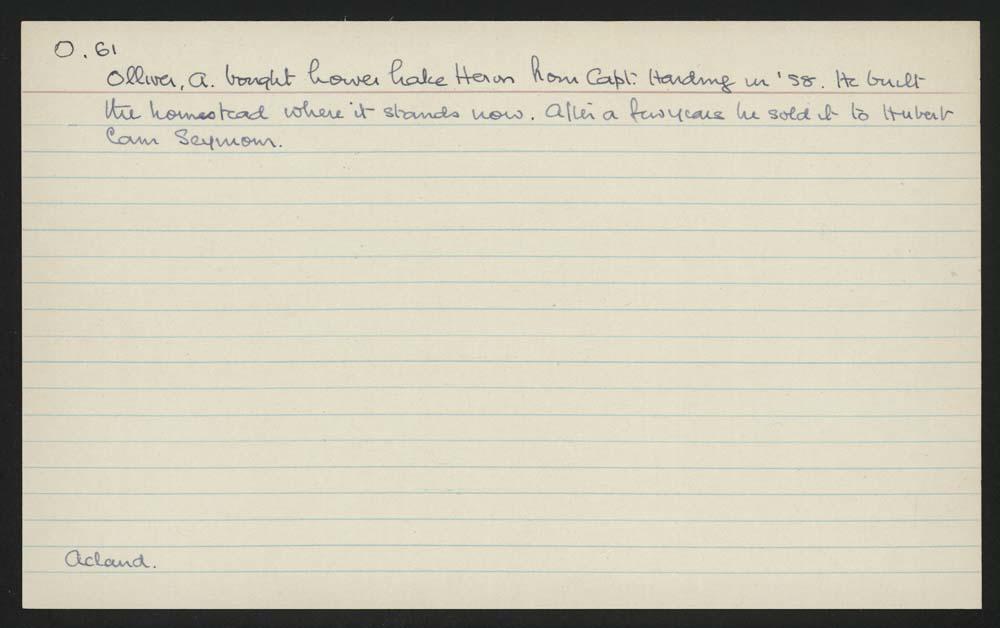 O. 61
Olliver, A. bought Lower Lake Heron from Capt: Harding in '58. He built
the homestead where it stands now. After a few years he sold it to Hubert
Cam Seymour.
Acland.